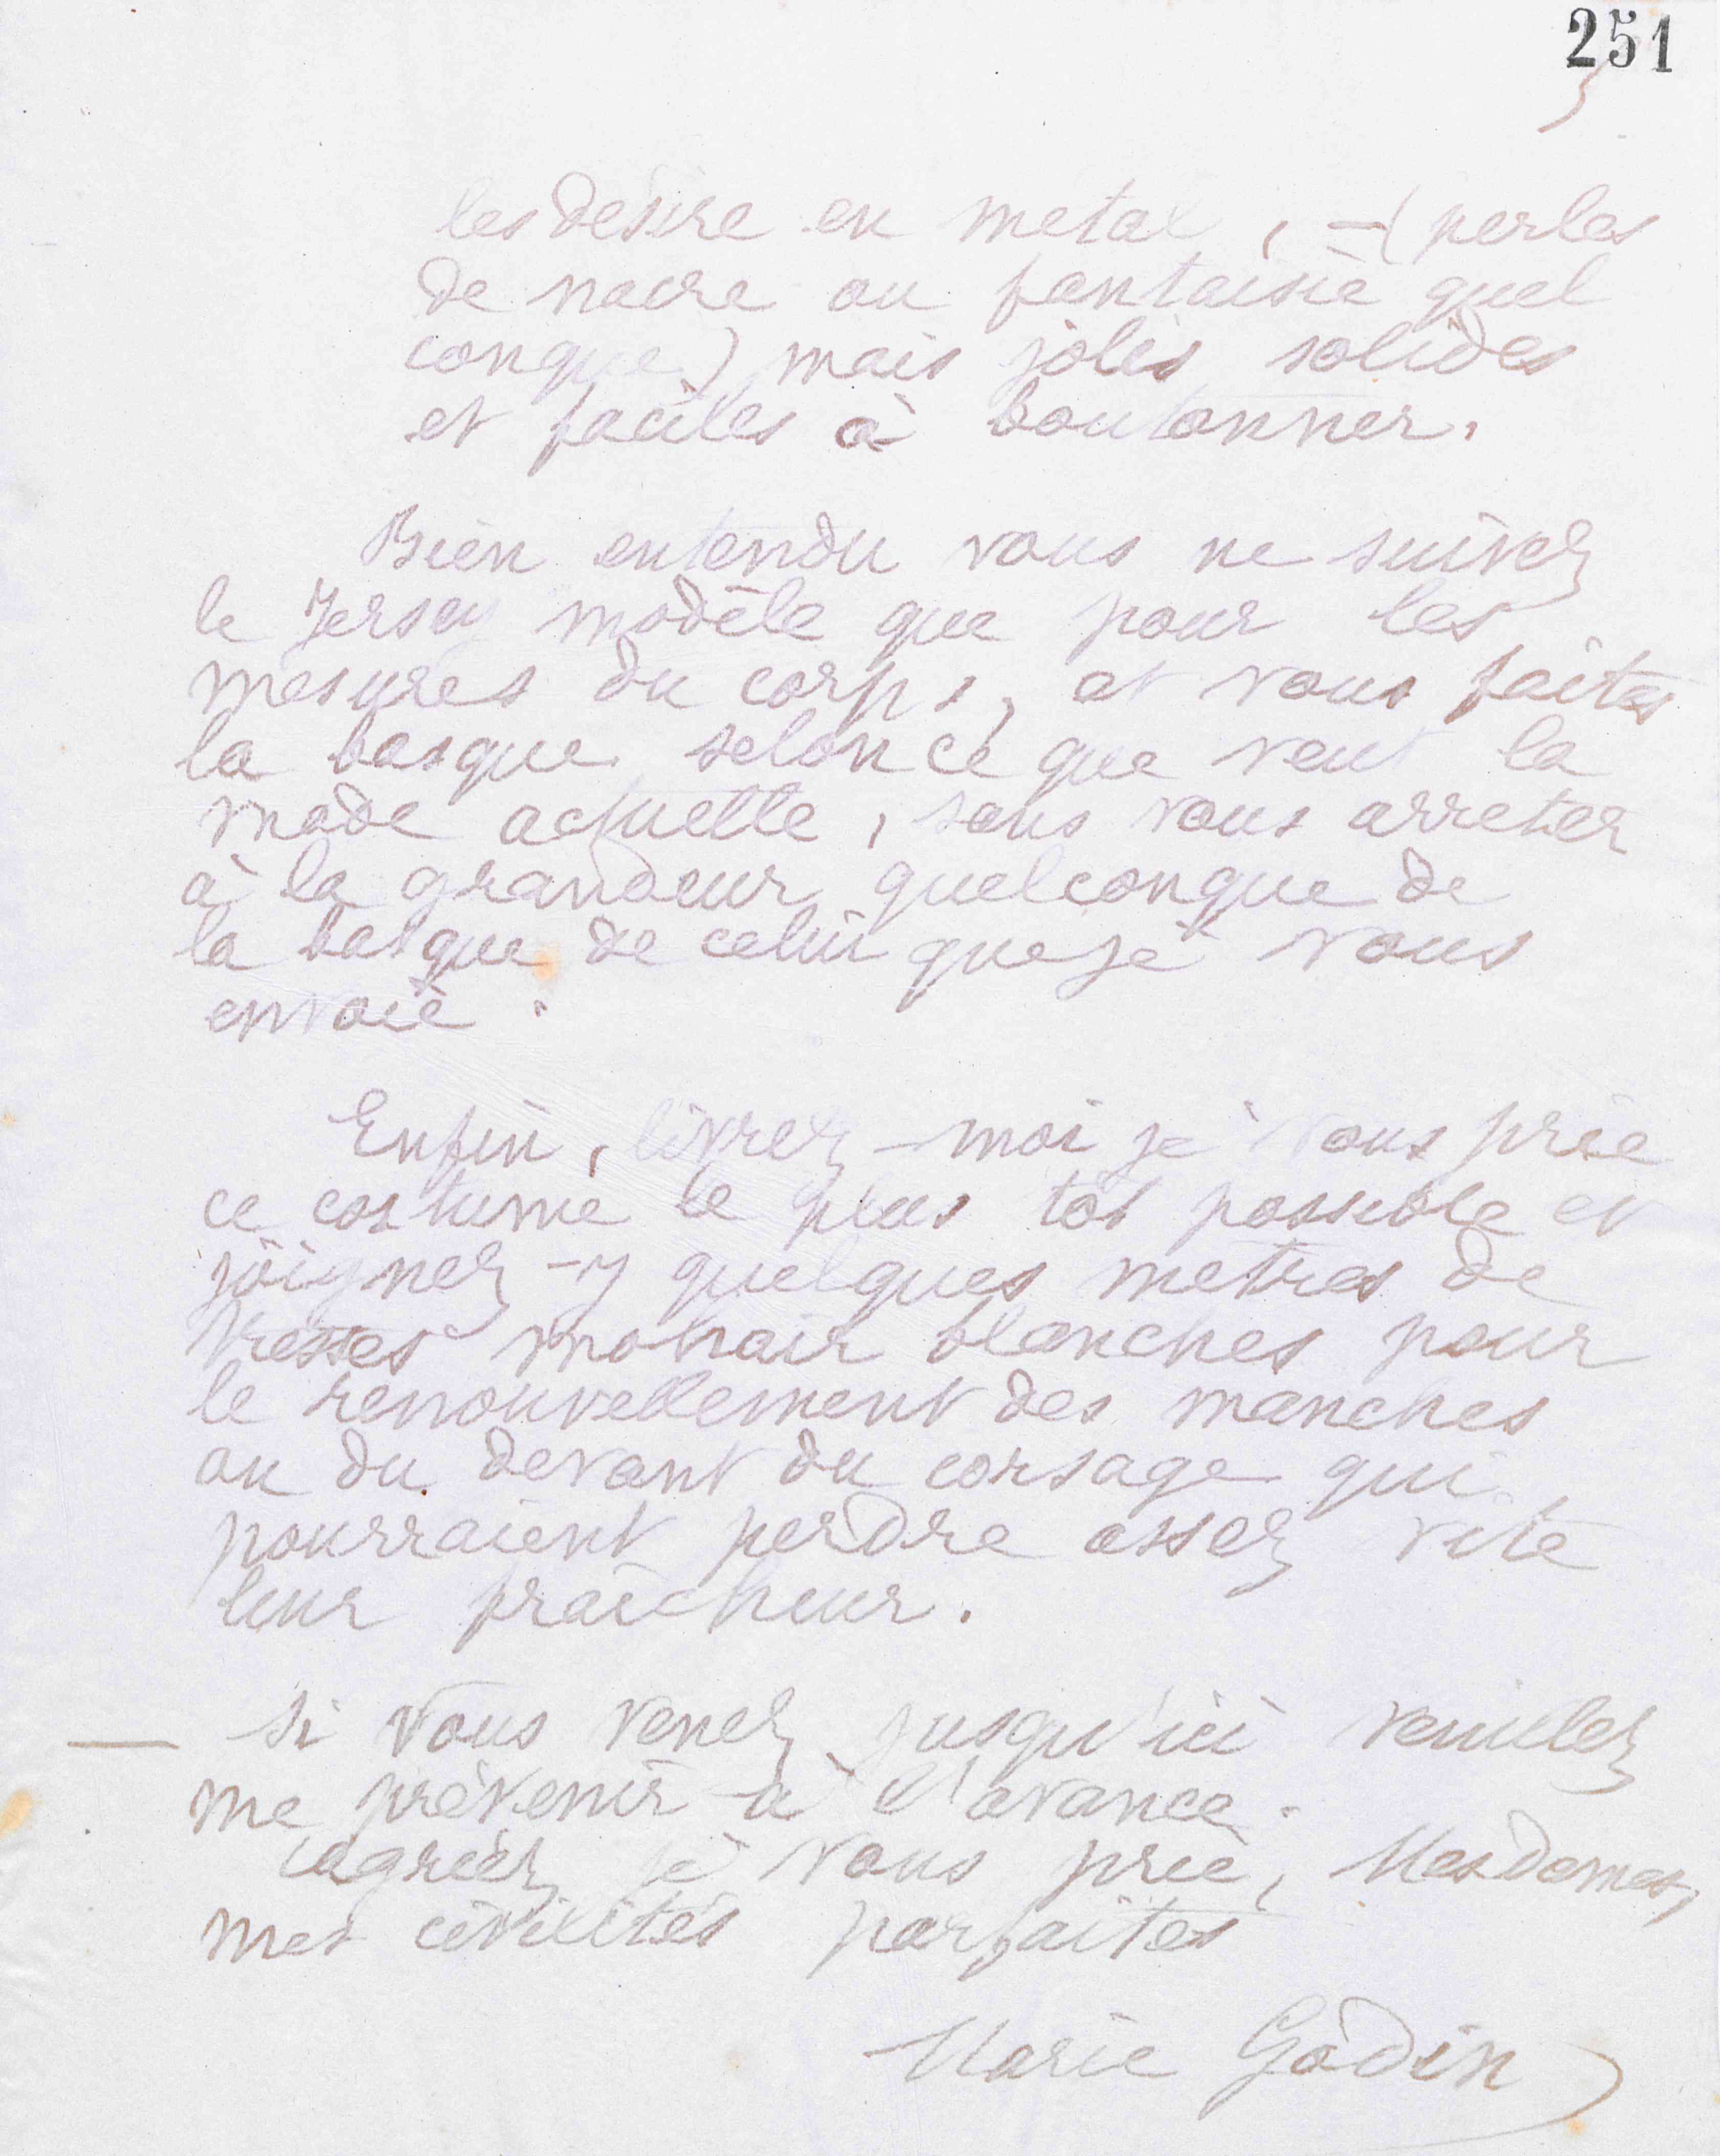 251
les désire en métal, — (perles
de nacre ou fantaisie quel
conque) mais jolis solides
et faciles à boutonner.
Bien entendu vous ne suivez
le Jersey modèle que pour les
mesures du corps, et vous faites
la basque selon ce que veut la
mode actuelle, sans vous arreter
à la grandeur quelconque de
la basque de celui que je vous
envoie.
Enfin, livrez-moi je vous prie
ce costume le plus tot possible et
joignez-y quelques metres de
tresses mohair blanches pour
le renouvellement des manches
ou du devant du corsage qui
pourraient perdre assez vite
leur fraîcheur.
— Si vous venez jusqu'ici veuillez
me prévenir à l'avance.
agréez je vous prie, Mesdames,
mes civilités parfaites
Marie Godin